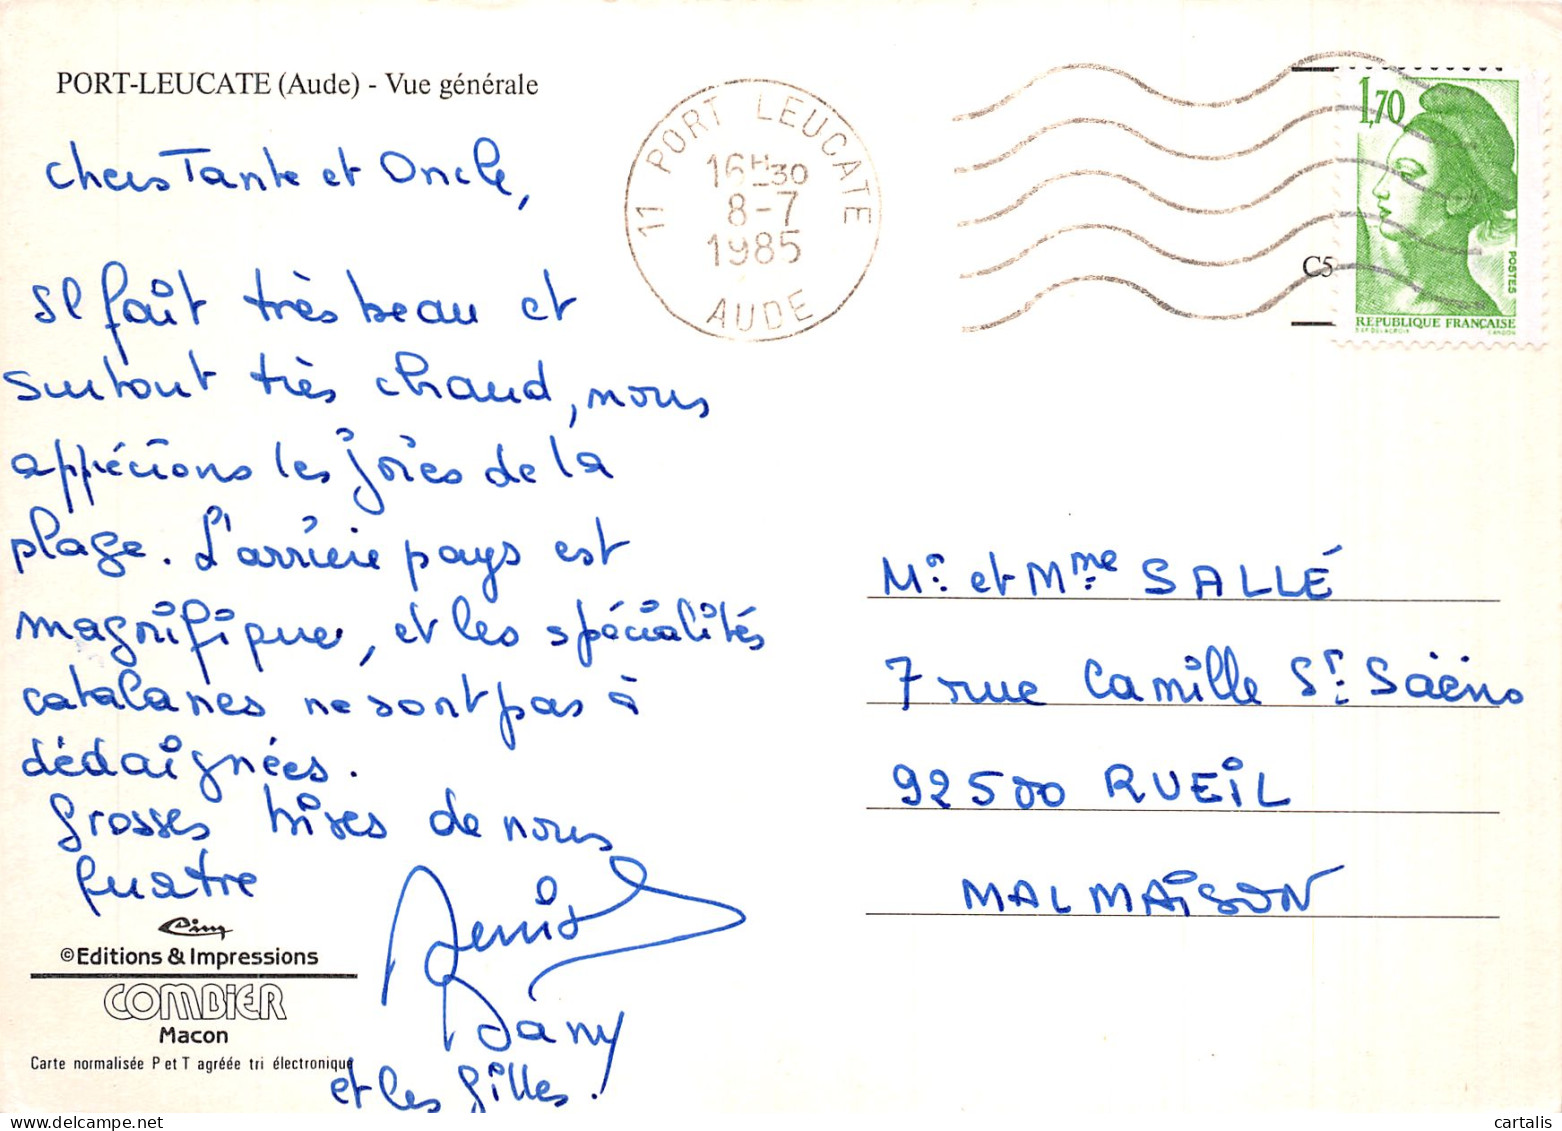 PORT-LEUCATE (Aude) - Vue générale
Chers Tante et Oncle,
Il fait très beau et
surtout très chaud, nous
appécions les joies de la
plage. L'arrière pays est
magnifique, et les spécialités
catalanes ne sont pas à
dédaignées.
Grosses bises de nous
quatre
Denis
Dány
et les filles.
Cim
©Editions & Impressions
COMBIER
Macon
Carte normalisée P et T agréée tri électronique
11 PORT LEUCATE
16H30
8-7
1985
AUDE
1,70
POSTES
C5
REPUBLIQUE FRANÇAISE
Mr. et Mme SALLÉ
7 rue Camille St. Säëns
92500 RUEIL
MALMAISON
cartalis
www.delcampe.net